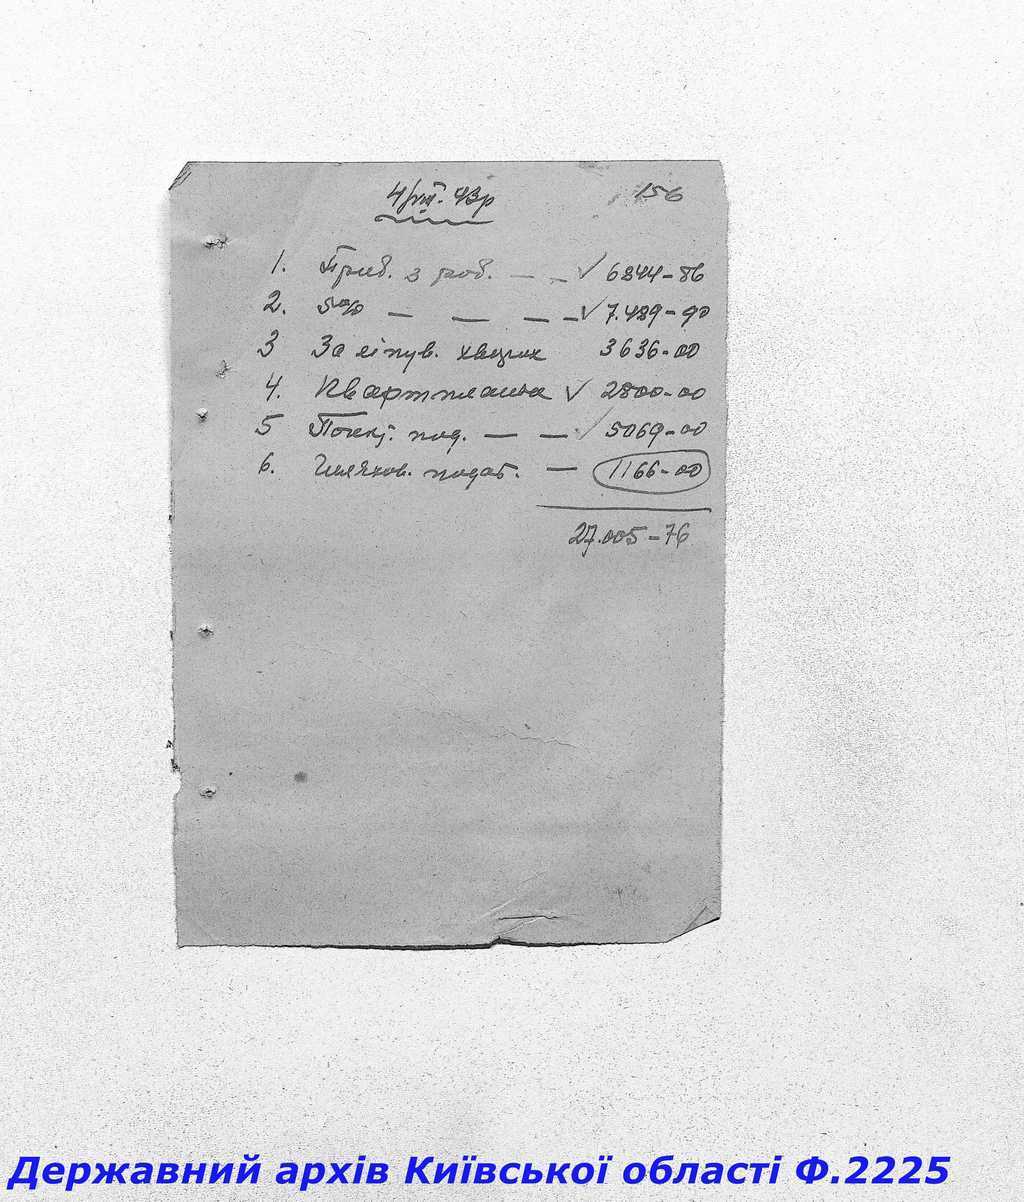 4/VIII. 43р
156
1. Приб. з роб. — — ✓ 6844-86
2. 5% — — — — ✓ 7.489-90
3 За лікув. хворих 3636-00
4. Квартплата ✓ 2800-00
5 под. — — ✓ 5069-00
6. подат. — 1166-00
27.005-76
Державний архів Київської області Ф.2225